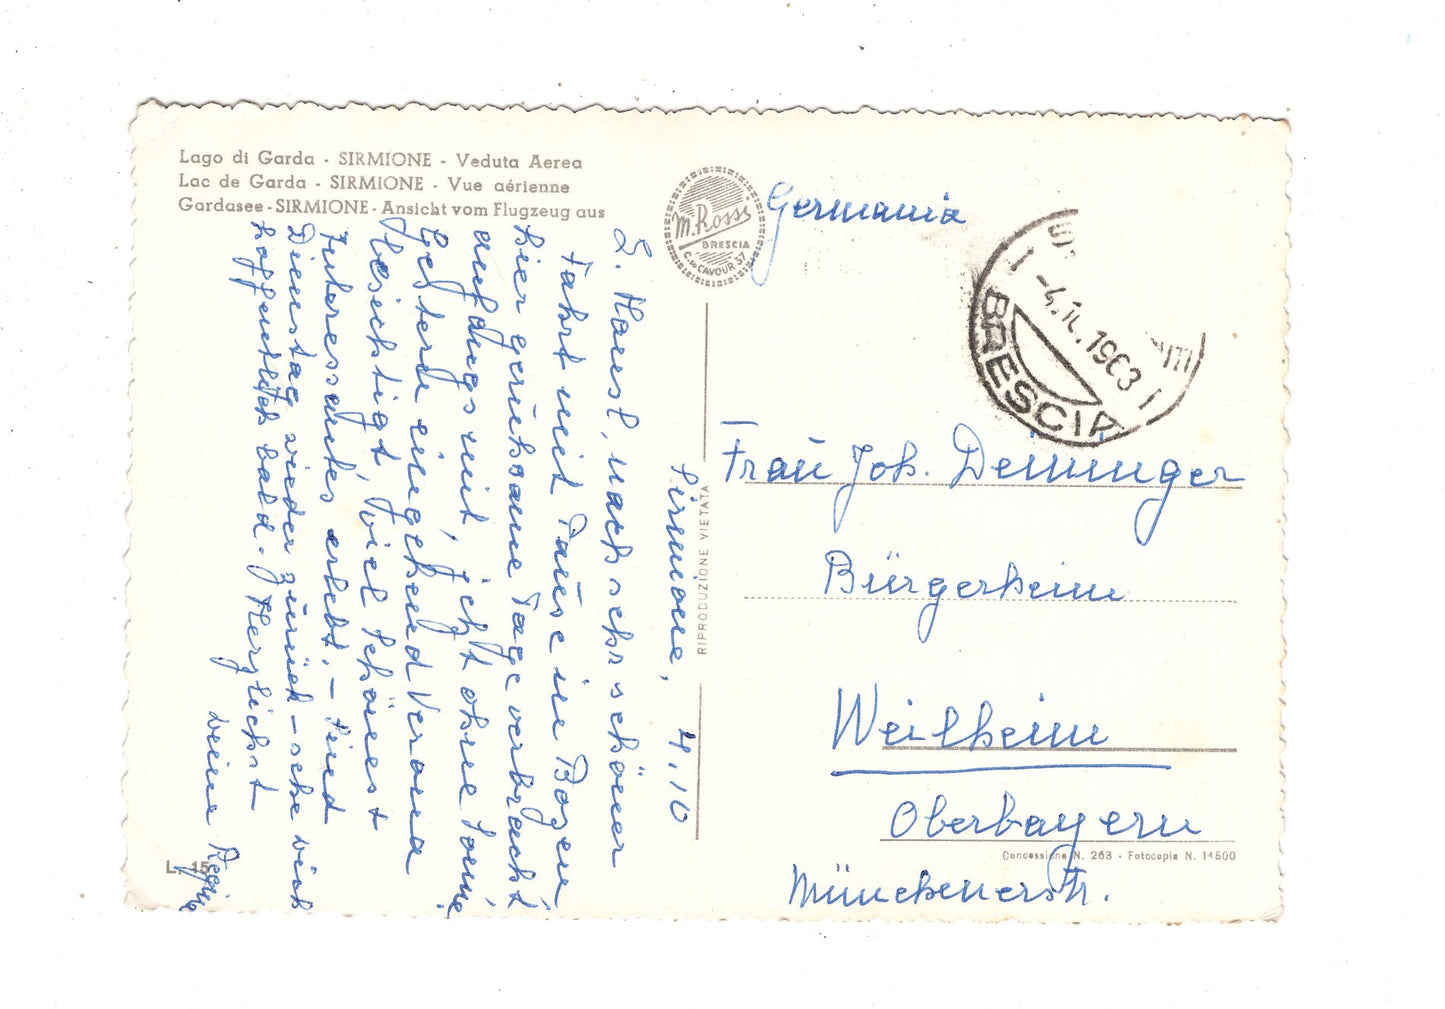 Lago di Garda - SIRMIONE - Veduta Aerea
Lac de Garda - SIRMIONE - Vue aérienne
Gardasee - SIRMIONE - Ansicht vom Flugzeug aus
M. Rossi
BRESCIA
C.so CAVOUR 37
Germania
BRESCIA
-4.X.1963
Sirmione, 4.10
L. Hansl, nach sehr schöner
Fahrt mit Pause in Bozen
hier geruhsame Tage verbracht
anfangs mit, jetzt ohne Sonne
Gestern eingehend Verona
besichtigt, viel Schönes +
Interessantes erlebt. – Sind
Dienstag wieder zurück – sehe Dich
hoffentlich bald. Herzlichst
Deine Regina
RIPRODUZIONE VIETATA
Frau Joh. Deininger
Bürgerheim
Weilheim
Oberbayern
Concessione N. 263 - Fotocopia N. 14500
Münchenerstr.
L. 15